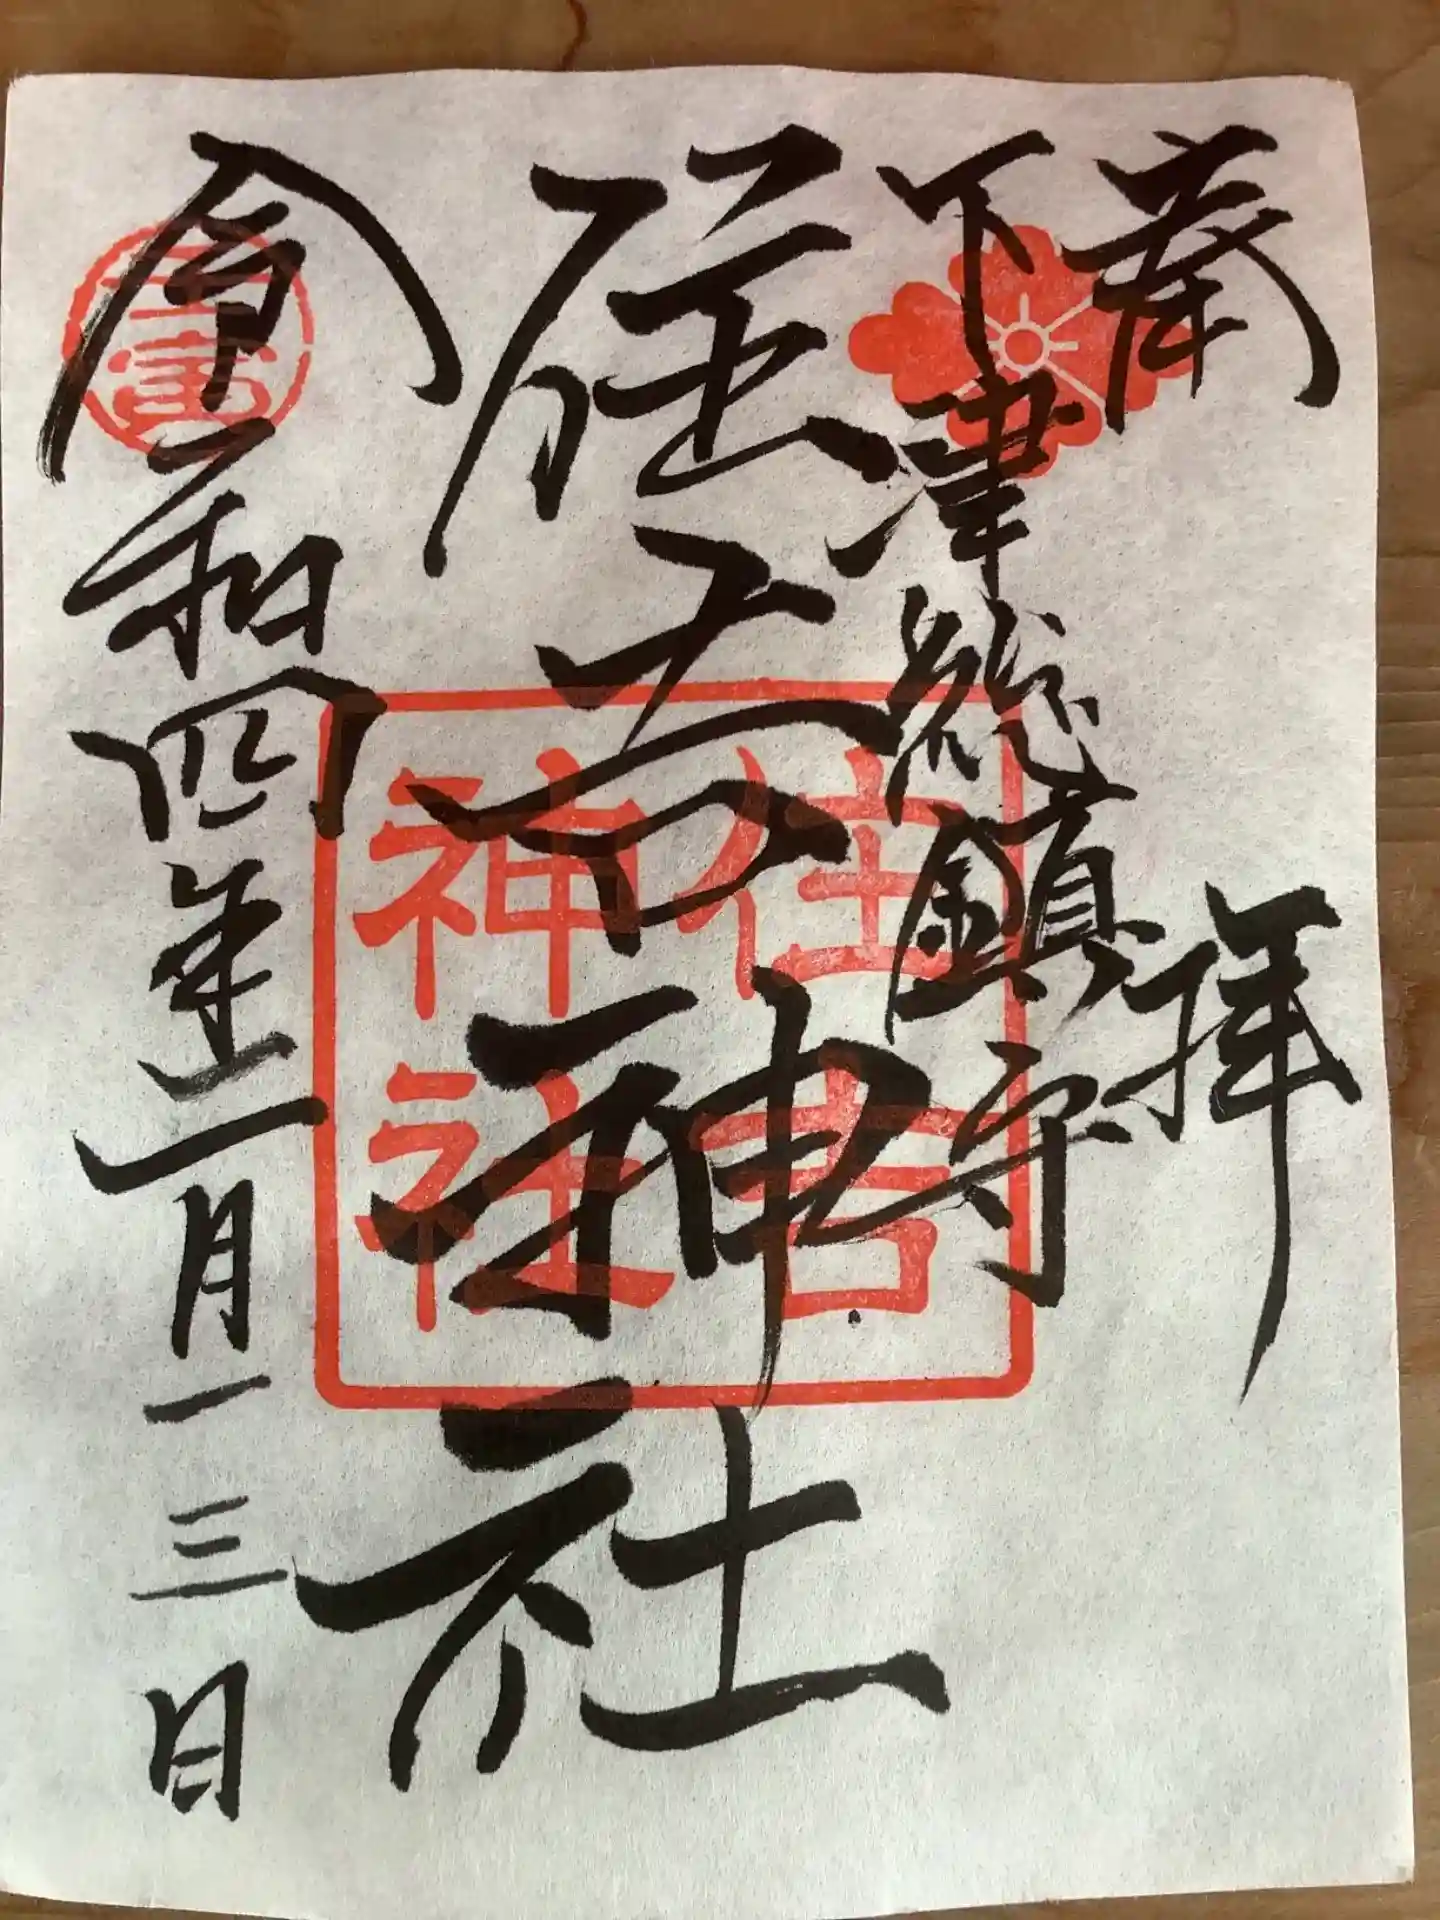 奉拝
下津総鎮守
住吉神社
令和四年二月一三日
住吉
神社